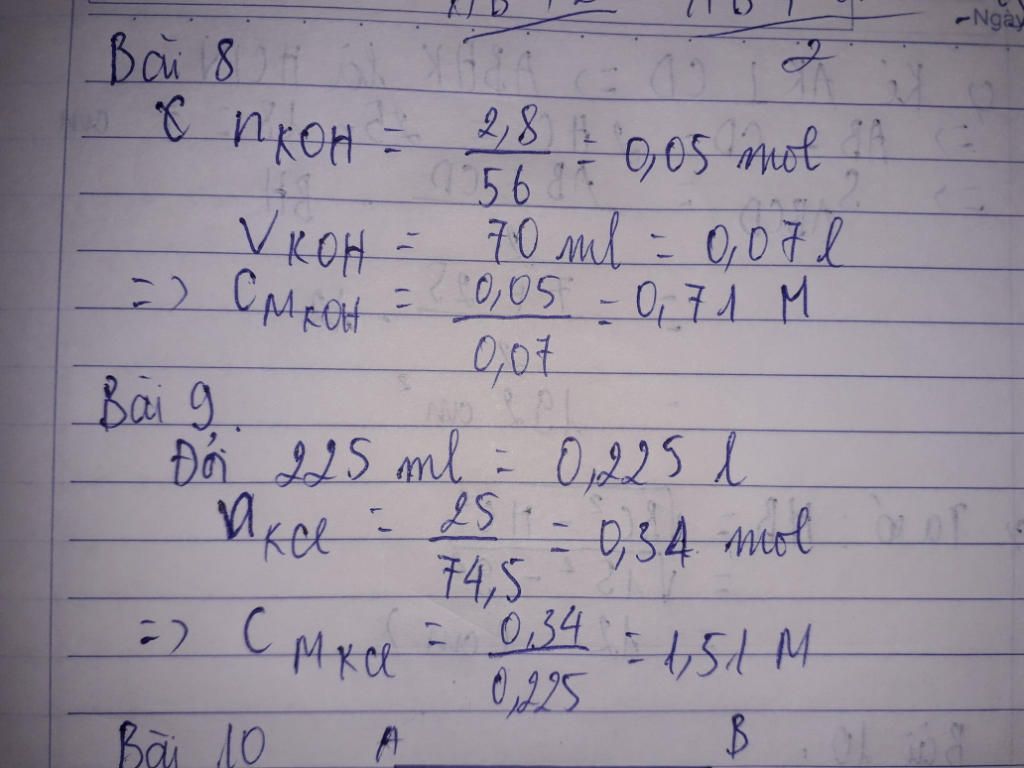 -Ngày
2
Bài 8
n KOH = 2,8 / 56 = 0,05 mol
V KOH = 70 ml = 0,07 l
=> C M KOH = 0,05 / 0,07 = 0,71 M
Bài 9.
Đổi 225 ml = 0,225 l
n KCl = 25 / 74,5 = 0,34 mol
=> C M KCl = 0,34 / 0,225 = 1,51 M
Bài 10 A B